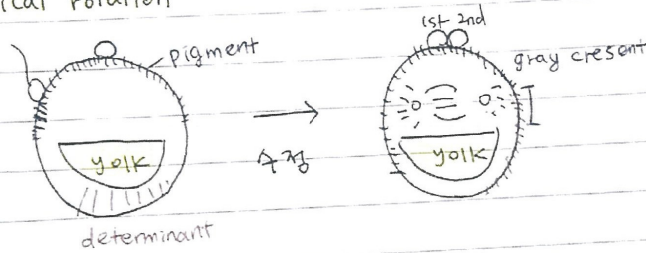 ical rotation
pigment
yolk
determinant
수정
1st 2nd
gray cresent
yolk